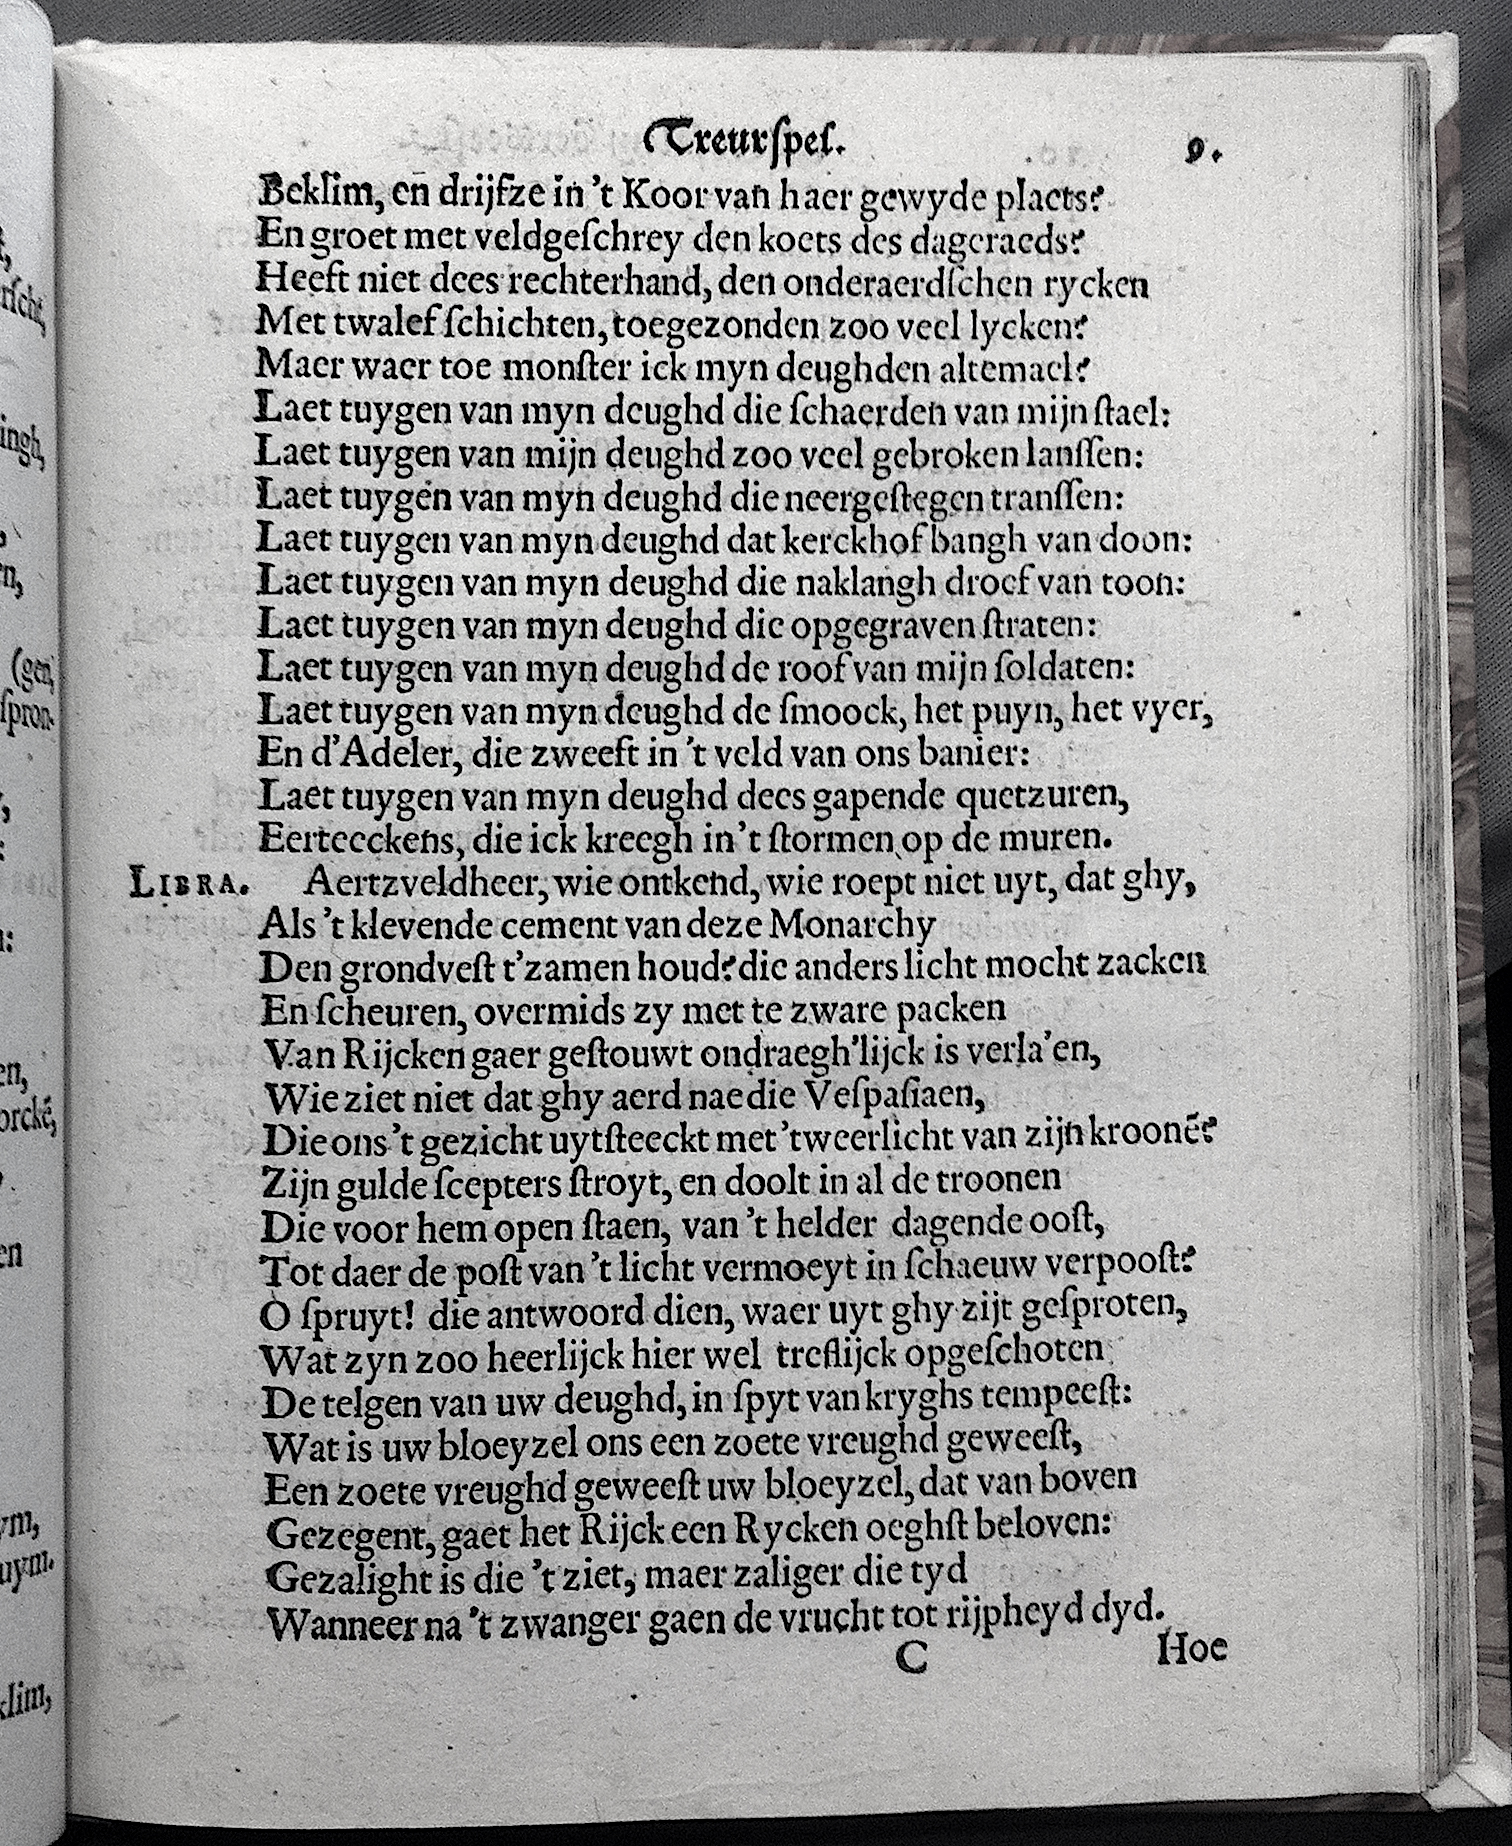 Treurſpel. 9.
Beklim, en drijfze in 't Koor van haer gewyde plaets?
En groet met veldgeſchrey den koets des dageraeds?
Heeft niet dees rechterhand, den onderaerdſchen rycken
Met twalef ſchichten, toegezonden zoo veel lycken?
Maer waer toe monſter ick myn deughden altemael?
Laet tuygen van myn deughd die ſchaerden van mijn ſtael:
Laet tuygen van mijn deughd zoo veel gebroken lanſſen:
Laet tuygen van myn deughd die neergeſtegen tranſſen:
Laet tuygen van myn deughd dat kerckhof bangh van doon:
Laet tuygen van myn deughd die naklangh droef van toon:
Laet tuygen van myn deughd die opgegraven ſtraten:
Laet tuygen van myn deughd de roof van mijn ſoldaten:
Laet tuygen van myn deughd de ſmoock, het puyn, het vyer,
En d'Adeler, die zweeft in 't veld van ons banier:
Laet tuygen van myn deughd dees gapende quetzuren,
Eerteeckens, die ick kreegh in 't ſtormen op de muren.
LIBRA. Aertzveldheer, wie ontkend, wie roept niet uyt, dat ghy,
Als 't klevende cement van deze Monarchy
Den grondveſt t'zamen houd? die anders licht mocht zacken
En ſcheuren, overmids zy met te zware packen
Van Rijcken gaer geſtouwt ondraegh'lijck is verla'en,
Wie ziet niet dat ghy aerd nae die Veſpaſiaen,
Die ons 't gezicht uytſteeckt met 'tweerlicht van zijn kroonē?
Zijn gulde ſcepters ſtroyt, en doolt in al de troonen
Die voor hem open ſtaen, van 't helder dagende ooſt,
Tot daer de poſt van 't licht vermoeyt in ſchaeuw verpooſt?
O ſpruyt! die antwoord dien, waer uyt ghy zijt geſproten,
Wat zyn zoo heerlijck hier wel treflijck opgeſchoten
De telgen van uw deughd, in ſpyt van kryghs tempeeſt:
Wat is uw bloeyzel ons een zoete vreughd geweeſt,
Een zoete vreughd geweeſt uw bloeyzel, dat van boven
Gezegent, gaet het Rijck een Rycken oeghſt beloven:
Gezalight is die 't ziet, maer zaliger die tyd
Wanneer na 't zwanger gaen de vrucht tot rijpheyd dyd.
C Hoe